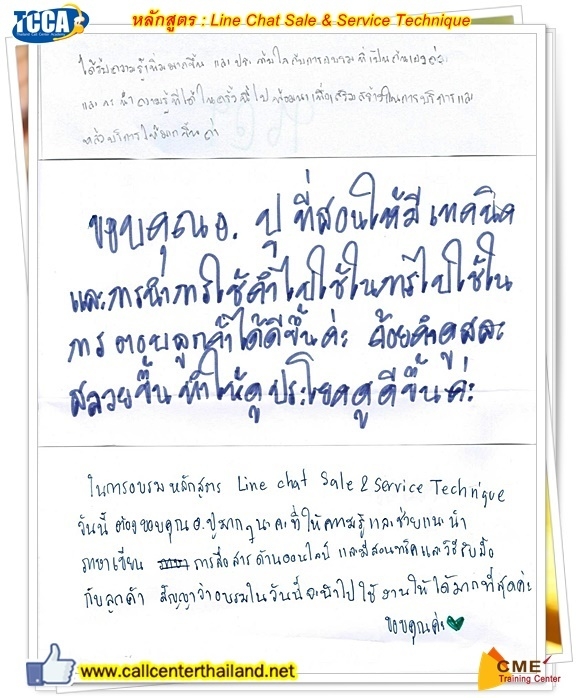 TCCA
Thailand Call Center Academy
หลักสูตร : Line Chat Sale & Service Technique
ได้รับความรู้เพิ่มมากขึ้น และ ประทับใจกับการอบรม ที่เป็นกันเองค่ะ
และ จะ นำ ความรู้ที่ได้ ในครั้งนี้ ไป พัฒนา เพื่อเสริมสร้างในการบริการและ
หลังบริการให้มากขึ้น ค่ะ
ขอบคุณ อ. ปู ที่สอนให้มี เทคนิค
และการนำการใช้คำไปใช้ในการไปใช้ใน
การ ตอบลูกค้าได้ดีขึ้นค่ะ ถ้อยคำดูสละ
สลวยขึ้น ทำให้ดูประโยคดูดีขึ้นค่ะ
ในการอบรม หลักสูตร Line chat Sale & Service Technique
วันนี้ ต้องขอบคุณ อ.ปูมากๆ นะคะ ที่ ให้ความรู้ และ ช่วยแนะนำ
ภาษาเขียน การสื่อสารด้านออนไลน์ และมีสอนเทคนิคและวิธีรับมือ
กับลูกค้า สัญญาว่าอบรมในวันนี้จะนำไปใช้งานให้ได้มากที่สุดค่ะ
ขอบคุณค่ะ
www.callcenterthailand.net
CME
Training Center